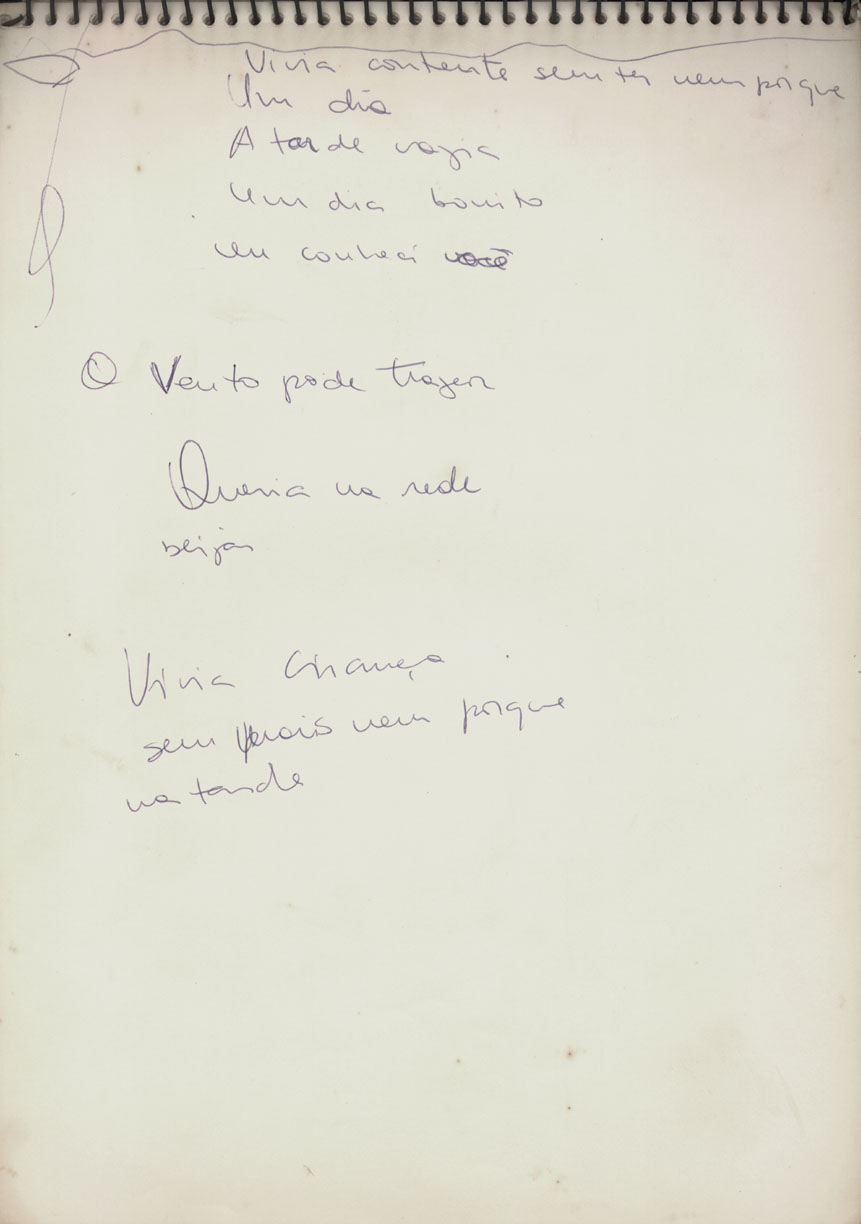 Vivia contente sem ter nem porque
Um dia
A tarde vazia
Um dia bonito
eu conheci você
O Vento pode trazer
Queria na rede
beijar
Vivia Criança
sem mais nem porque
na tarde